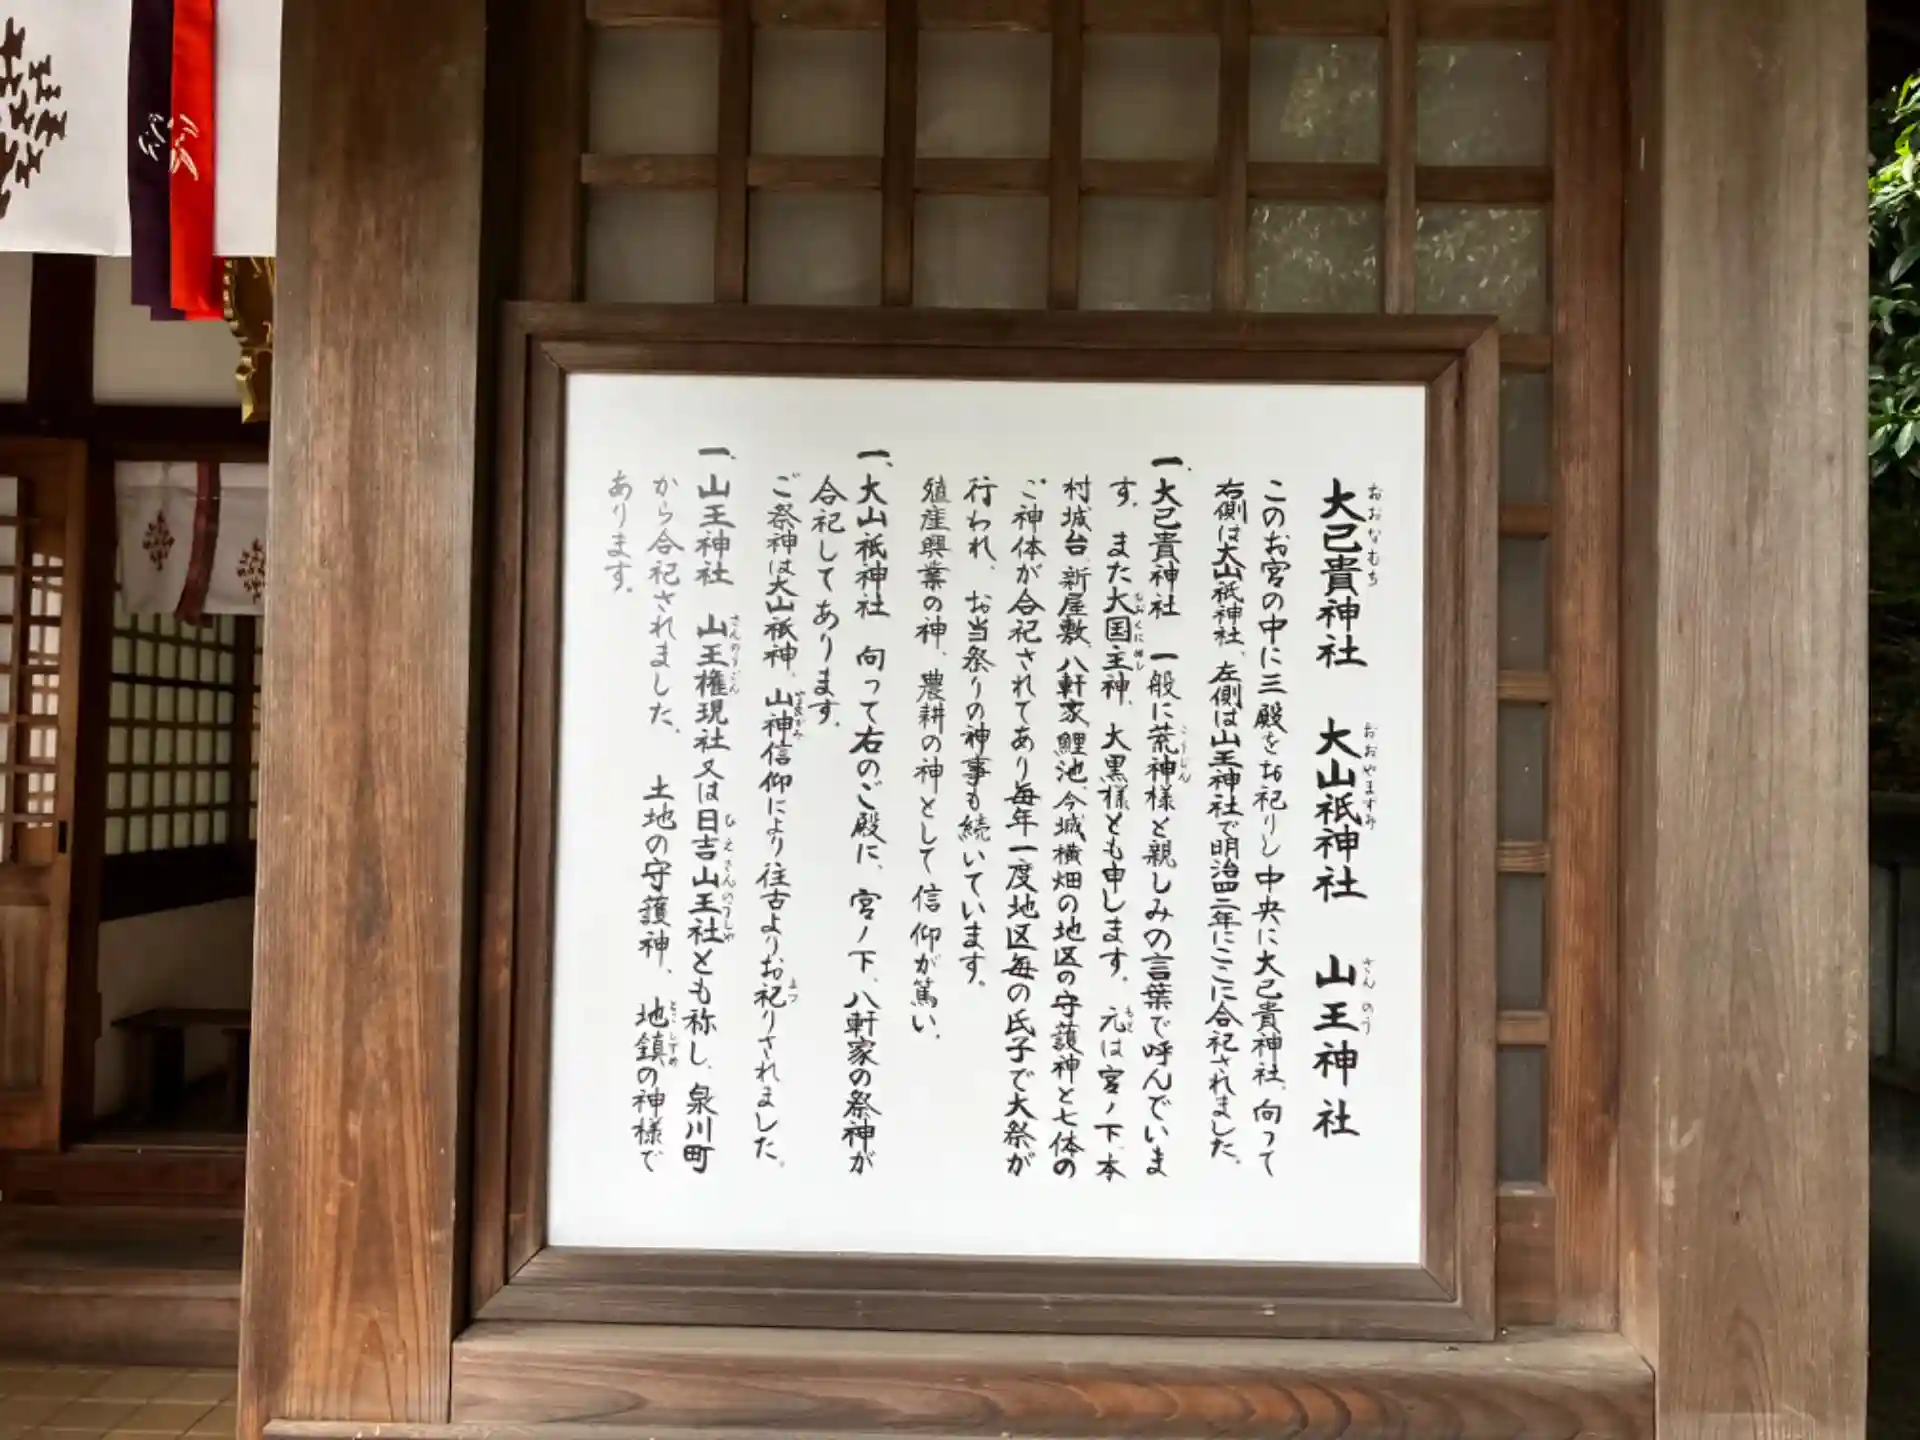 大己貴神社　大山祇神社　山王神社
おおなむち　おおやまずみ　さんのう
このお宮の中に三殿をお祀りし中央に大己貴神社、向って
右側は大山祇神社、左側は山王神社で明治四二年にここに合祀されました。
一、大己貴神社　一般に荒神様と親しみの言葉で呼んでいま
こうじん
す。また大国主神、大黒様とも申します。元は宮ノ下、本
おおくにぬし　もと
村城台、新屋敷、八軒家、鯉池、今城、横畑の地区の守護神と七体の
ご神体が合祀されてあり毎年一度地区毎の氏子で大祭が
行われ、お当祭りの神事も続いています。
殖産興業の神、農耕の神として信仰が篤い。
一、大山祇神社　向って右のご殿に、宮ノ下、八軒家の祭神が
合祀してあります。
ご祭神は大山祇神、山神信仰により往古よりお祀りされました。
やまがみ　まつ
一、山王神社　山王権現社又は日吉山王社とも称し、泉川町
さんのうごん　ひえさんのうしゃ
から合祀されました。　土地の守護神、地鎮の神様で
とこしずめ
あります。